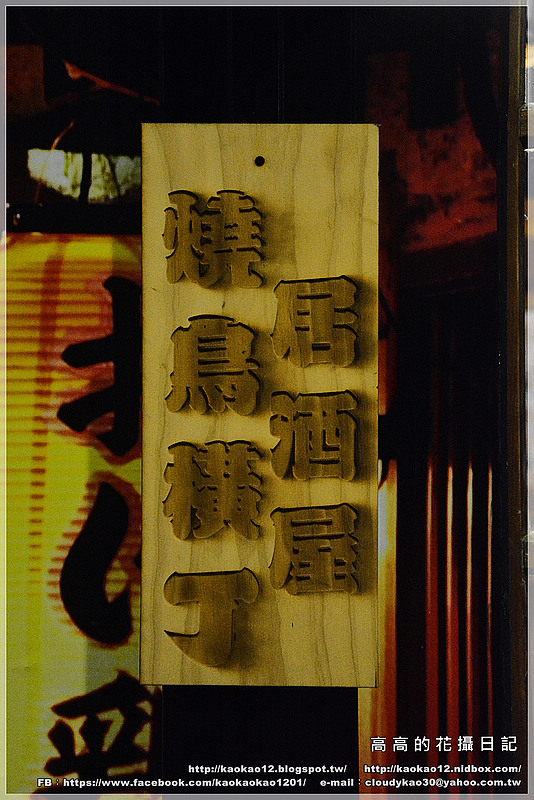 居酒屋
燒鳥横丁
高高的花攝日記
http://kaokao12.blogspot.tw/ http://kaokao12.nidbox.com/
FB：https://www.facebook.com/kaokaokao1201/ e-mail：cloudykao30@yahoo.com.tw